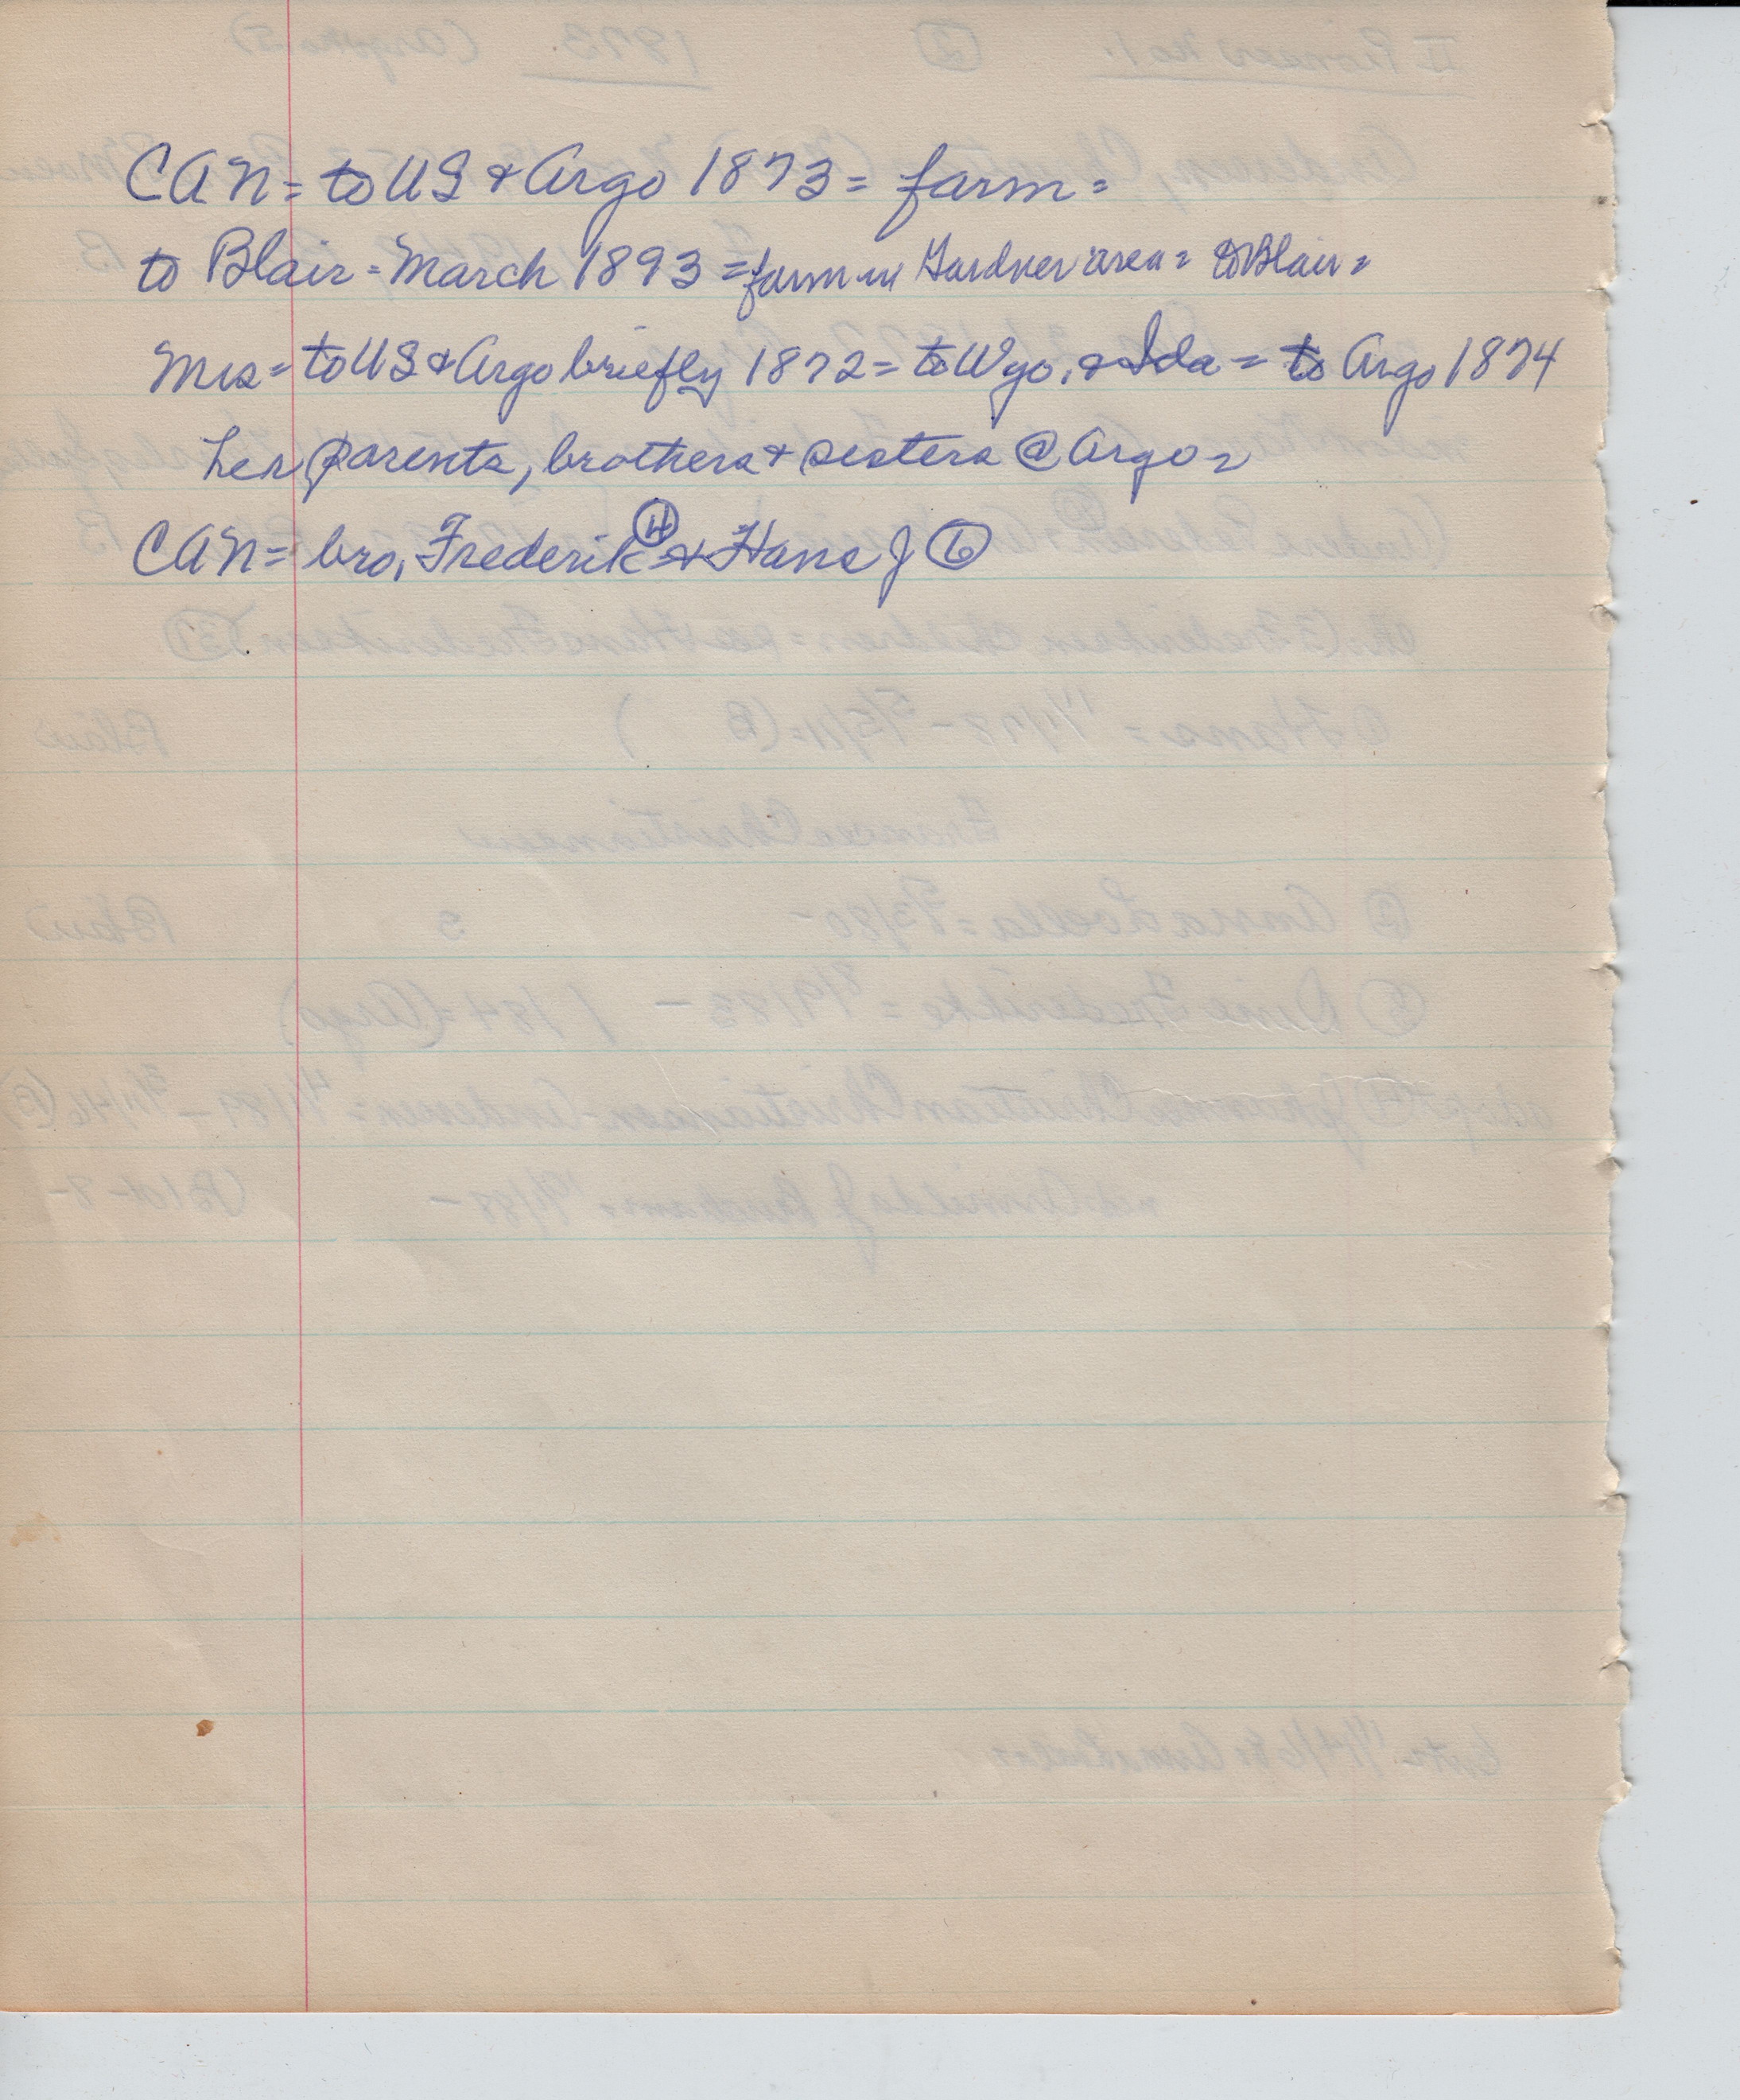 CAN = to US & Argo 1873 = farm =
to Blair = March 1893 = farm in Gardner area = to Blair =
Mrs = to US & Argo briefly 1872 = to Wyo. & Ida = to Argo 1874
her parents, brothers & sisters @ Argo =
CAN = bro. Frederik ④ & Hans J ⑥